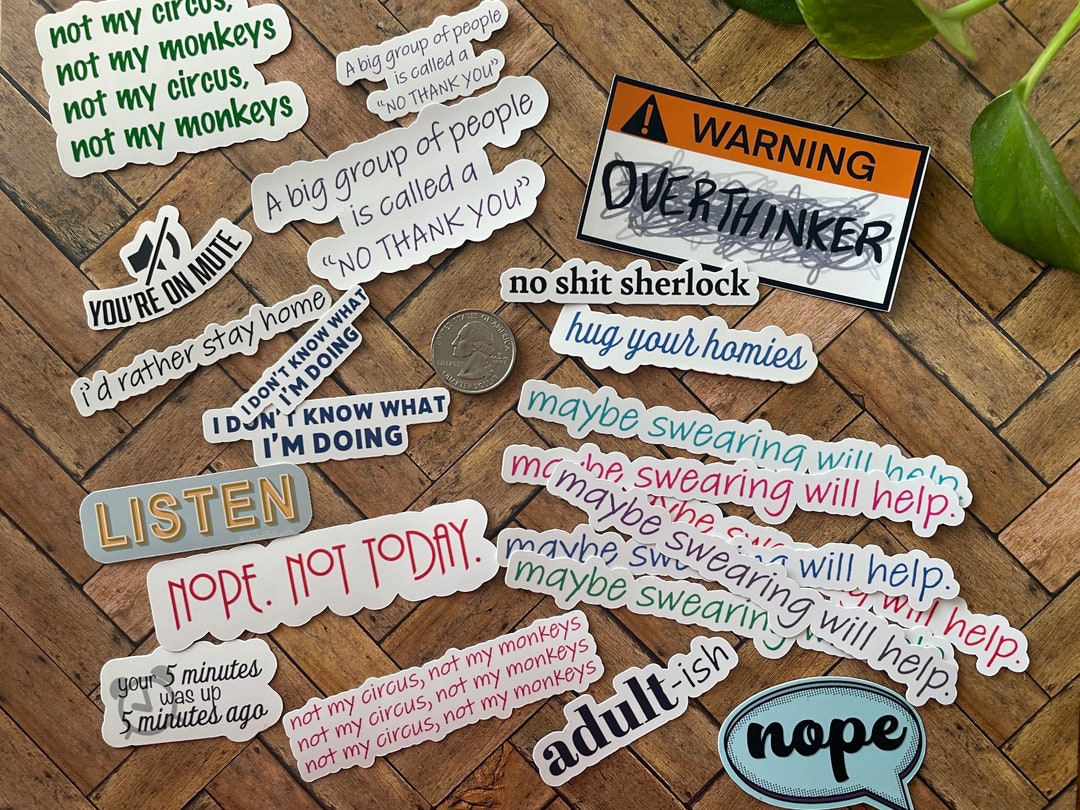 not my circus,
not my monkeys
not my circus,
not my monkeys
A big group of people
is called a
"NO THANK YOU"
A big group of people
is called a
"NO THANK YOU"
WARNING
OVERTHINKER
YOU'RE ON MUTE
no shit sherlock
i'd rather stay home
I DON'T KNOW WHAT
I'M DOING
I DON'T KNOW WHAT
I'M DOING
hug your homies
maybe swearing will help.
maybe swearing will help.
maybe swearing will help.
maybe swearing will help.
maybe swearing will help.
maybe swearing will help.
LISTEN
NOPE. NOT TODAY.
your 5 minutes
was up
5 minutes ago
not my circus, not my monkeys
not my circus, not my monkeys
not my circus, not my monkeys
adult-ish
nope